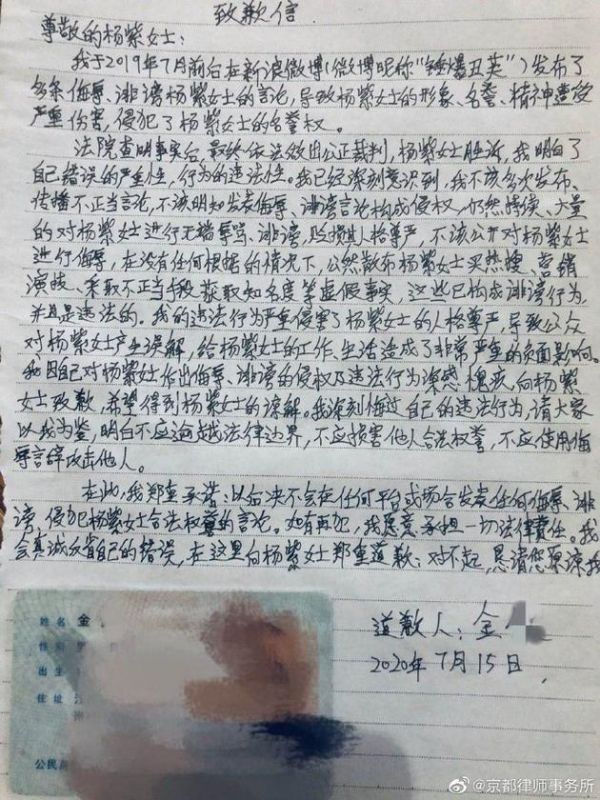 致歉信
尊敬的杨紫女士:
我于2019年7月前后在新浪微博(微博昵称"锤爆丑英")发布了
多条侮辱、诽谤杨紫女士的言论,导致杨紫女士的形象、名誉、精神遭受
严重伤害,侵犯了杨紫女士的名誉权。
法院查明事实后,最终依法做出公正裁判,杨紫女士胜诉,我明白了
自己错误的严重性,行为的违法性。我已经深刻意识到,我不该多次发布、
传播不正当言论,不该明知发表侮辱、诽谤言论构成侵权,仍然持续、大量
的对杨紫女士进行无端辱骂、诽谤,毁损其人格尊严,不该公开对杨紫女士
进行侮辱,在没有任何根据的情况下,公然散布杨紫女士买热搜、营销
演技、采取不正当手段获取知名度等虚假事实,这些已构成诽谤行为,
并且是违法的。我的违法行为严重侵害了杨紫女士的人格尊严,导致公众
对杨紫女士产生误解,给杨紫女士的工作、生活造成了非常严重的负面影响。
我因自己对杨紫女士作出侮辱、诽谤的侵权及违法行为深感愧疚,向杨紫
女士致歉,希望得到杨紫女士的谅解。我深刻悔过自己的违法行为,请大家
以我为鉴,明白不应逾越法律边界,不应损害他人合法权誉,不应使用侮
辱言辞攻击他人。
在此,我郑重承诺:以后决不会在任何平台或场合发表任何侮辱、诽
谤、侵犯杨紫女士合法权益的言论。如有再犯,我愿意承担一切法律责任。我
会真诚反省自己的错误,在这里向杨紫女士郑重道歉:对不起,恳请您原谅我
道歉人:金
2020年7月15日.
姓名 金
性别
出生
住址
公民
@京都律师事务所